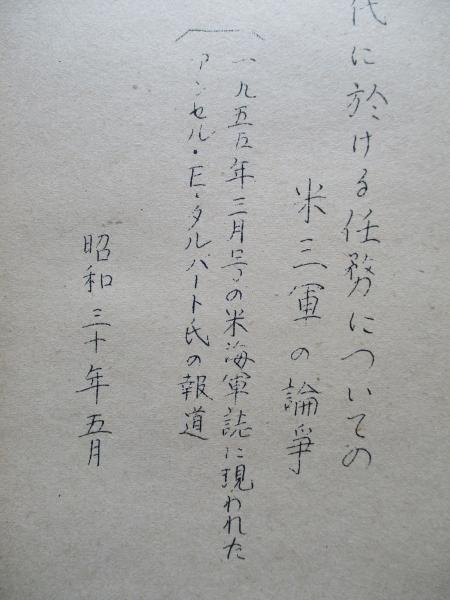 代に於ける任務についての
米三軍の論爭
(一九五五年三月号の米海軍誌に現われた
アンセル・E・タルバート氏の報道
昭和三十年五月